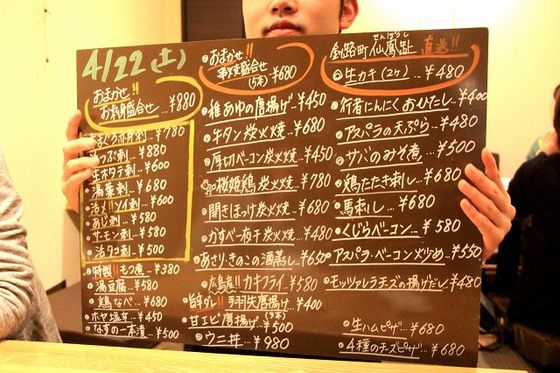 4/22(土)
おまかせ!!
お刺身盛合せ …¥880
まぐろ赤身刺…¥780
つぶ刺…¥880
生ホタテ刺…¥600
湯葉刺…¥680
活〆!!ソイ刺…¥600
あじ刺…¥580
サーモン刺…¥580
活タコ刺…¥500
特製!!もつ煮…¥380
湯豆腐…¥580
鶏なべ…¥680
ホヤ塩辛…¥450
なすの一本漬…¥500
おまかせ!!
串炭盛合せ(5本) ¥680
稚あゆの唐揚げ ¥450
牛タン炭火焼…¥680
厚切ベーコン炭火焼…¥450
桜姫鶏炭火焼…¥780
開きほっけ炭火焼…¥680
かすべ一夜干炭火焼…¥480
あさりときのこの酒蒸し…¥650
広島産!!カキフライ…¥580
旨辛ダレ!!手羽先唐揚げ…¥400
甘エビ唐揚げ…¥500
ウニ丼…¥980
釧路町仙鳳趾 直送!!
せんぽうし
生カキ(2ヶ)…¥480
行者にんにくおひたし…¥400
アスパラの天ぷら…¥480
サバのみそ煮…¥500
鶏たたき刺し…¥680
馬刺し…¥680
くじらベーコン…¥580
アスパラ・ベーコン炒め…¥550
モッツァレラチーズの揚げだし…¥480
生ハムピザ…¥680
4種のチーズピザ…¥680